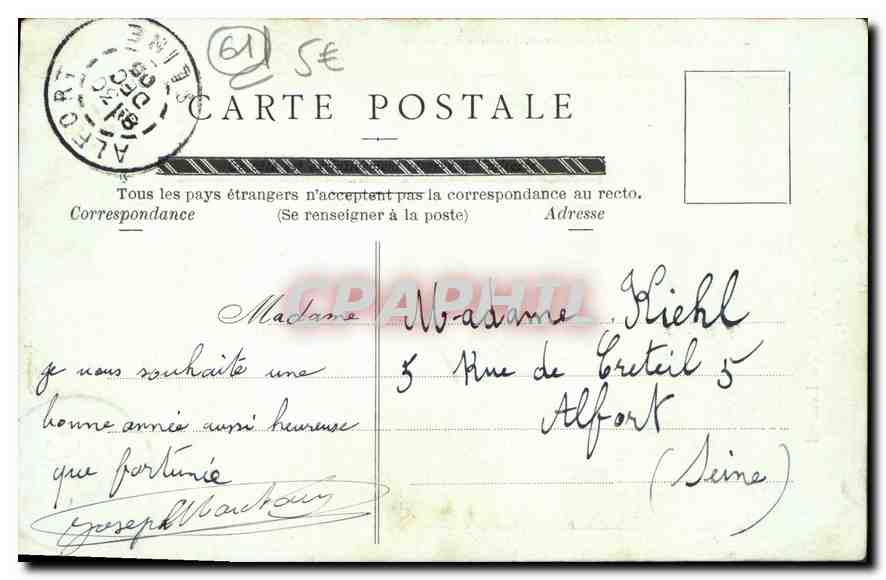 61 5€
ALFORT SEINE
30 DEC 05
CARTE POSTALE
Tous les pays étrangers n'acceptent pas la correspondance au recto.
Correspondance (Se renseigner à la poste) Adresse
CPAPHIL
Madame
je vous souhaite une
bonne année aussi heureuse
que fortunée
Joseph
Madame Kiehl
5 Rue de Creteil 5
Alfort
(Seine)